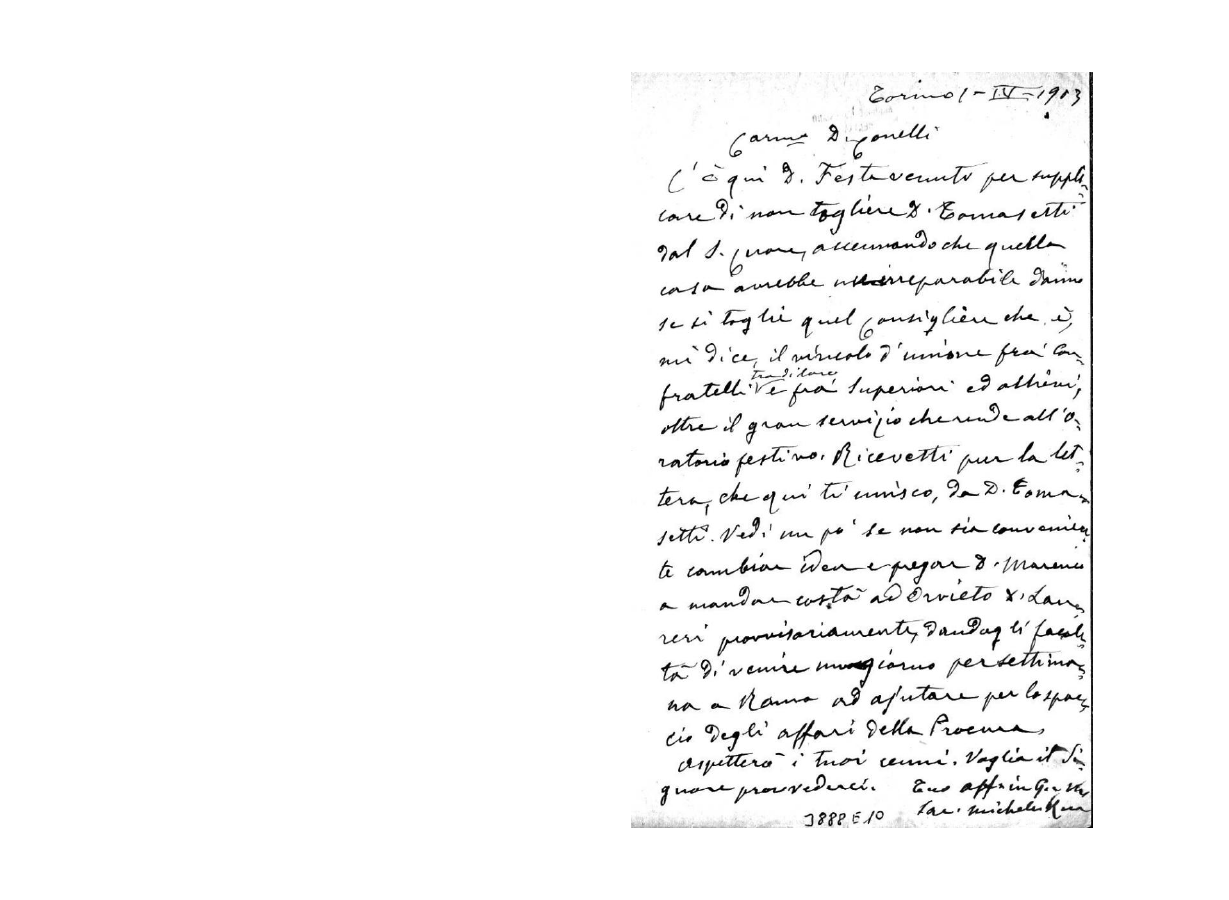 Torino 1-IV-1913
Carmo D. Conelli
C'è qui D. Festa venuto per suppli-
care di non togliere D. Tomasetti
dal S. Cuore, accennando che quella
casa avrebbe irreparabile danno
se si toglie quel Consigliere che è,
mi dice, il vincolo d'unione fra i con-
tra di loro
fratelli e fra Superiori ed allievi,
oltre il gran servizio che rende all'o-
ratorio festivo. Ricevetti pur la let-
tera, che qui ti unisco, da D. Toma-
setti. Vedi un po' se non sia convenien
te cambiar idea e pregar D. Marenco
a mandar costà ad Orvieto D. Lau-
reri provvisoriamente, dandogli facol-
tà di venire un giorno per settima-
na a Roma ad ajutare per lo spac-
cio degli affari della Procura.
Aspetterò i tuoi cenni. Voglia il Si-
gnore provvederci. Tuo aff. in G. e M.
Sac. Michele Rua
3888 E 10